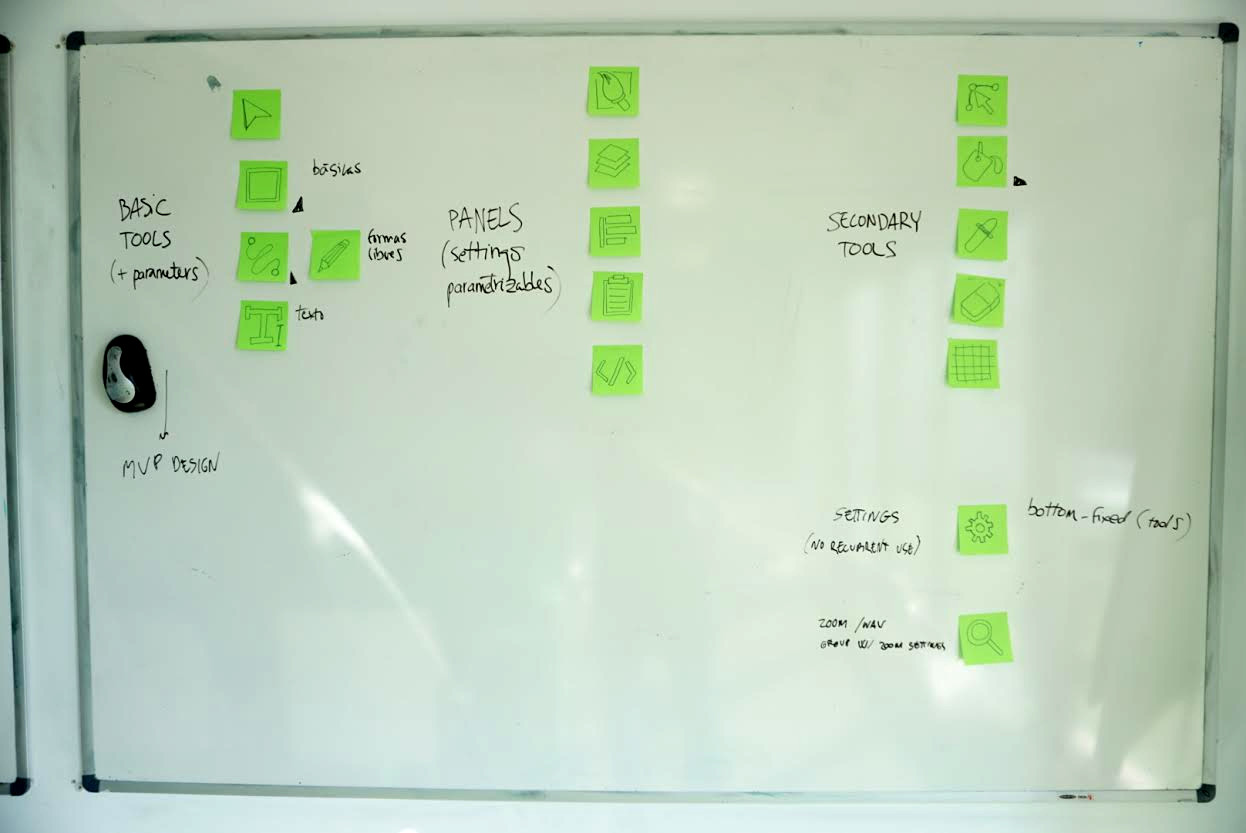 BASIC
TOOLS
(+ parameters)
básicas
formas
libres
texto
MVP DESIGN
PANELS
(settings
parametrizables)
SECONDARY
TOOLS
SETTINGS
(NO RECURRENT USE)
bottom-fixed (tools)
ZOOM / NAV
GROUP W/ ZOOM SETTINGS